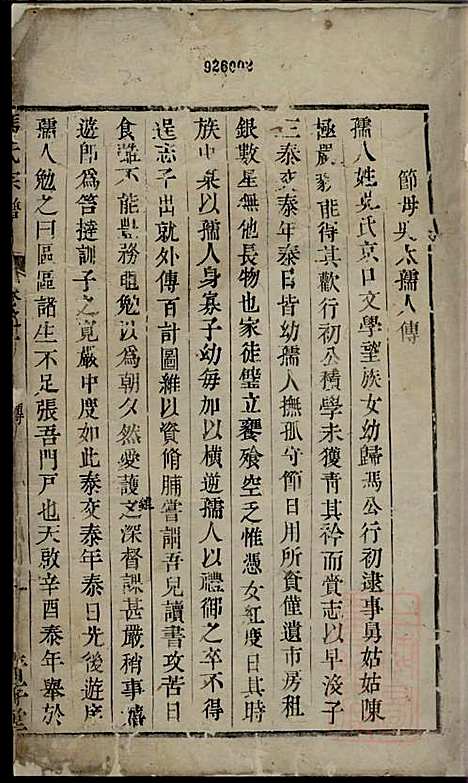 926002
節母吳太孺人傳
孺人姓吳氏京口文學望族女幼歸馮公行初逮事舅姑姑陳
極嚴毅能得其歡行初公積學未獲青其衿而賫志以早沒子
三泰交泰年泰日皆幼孺人撫孤守節日用所貧僅遺市房租
銀數星無他長物也家徒璧立饔飱空乏惟憑女紅度日其時
族中梟以孺人身寡子幼每加以橫逆孺人以禮御之卒不得
逞志子出就外傳百計圖維以資脩脯嘗訓吾兒讀書攻苦日
食雖不能豐務黽勉以為朝夕然愛護之深督課甚嚴稍事
遊卽為笞撻訓子之寛嚴中度如此泰交泰年泰日先後遊庠
孺人勉之曰區區諸生不足張吾門戸也天啟辛酉泰年舉於
氏宗譜
傳